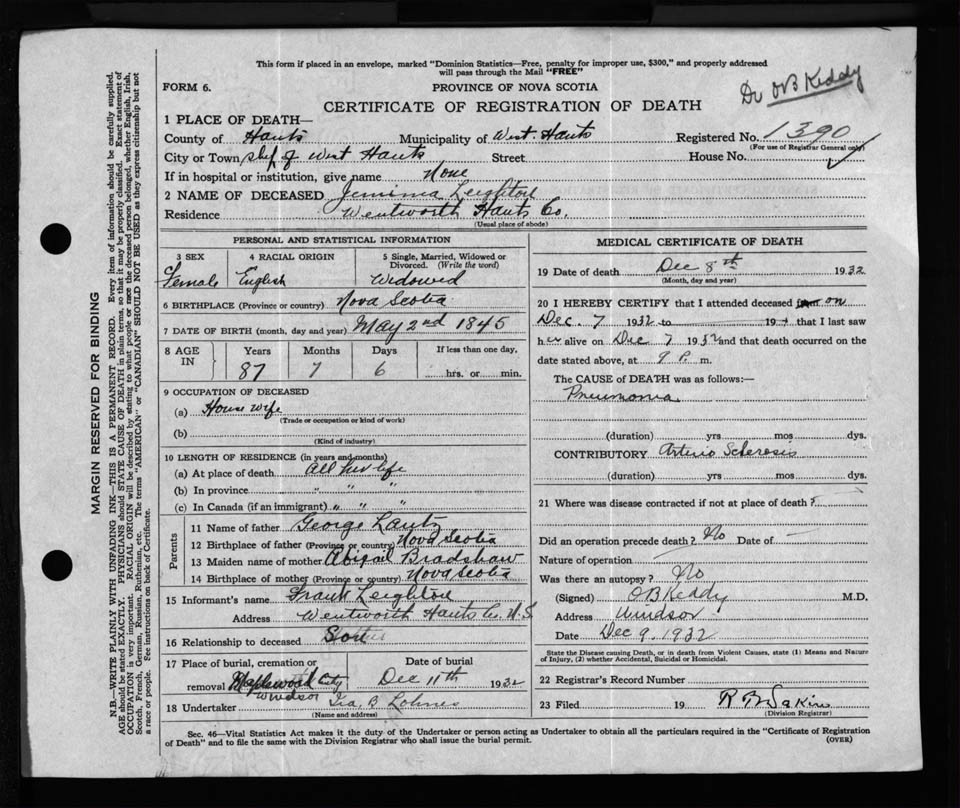 This form if placed in an envelope, marked "Dominion Statistics—Free, penalty for improper use, $300," and properly addressed
will pass through the Mail "FREE"
FORM 6.
PROVINCE OF NOVA SCOTIA
Dr OB Keddy
CERTIFICATE OF REGISTRATION OF DEATH
1 PLACE OF DEATH—
County of Hants Municipality of West Hants Registered No. 1390
(For use of Registrar General only)
City or Town of West Hants Street House No.
If in hospital or institution, give name None
2 NAME OF DECEASED Jemima Leighton
Residence Wentworth Hants Co.
(Usual place of abode)
PERSONAL AND STATISTICAL INFORMATION
3 SEX 4 RACIAL ORIGIN 5 Single, Married, Widowed or
Divorced. (Write the word)
Female English Widowed
6 BIRTHPLACE (Province or country) Nova Scotia
7 DATE OF BIRTH (month, day and year) May 2nd 1845
8 AGE IN Years Months Days If less than one day.
87 7 6 hrs. or min.
9 OCCUPATION OF DECEASED
(a) House wife
(Trade or occupation or kind of work)
(b)
(Kind of industry)
10 LENGTH OF RESIDENCE (in years and months)
(a) At place of death All her life
(b) In province " " "
(c) In Canada (if an immigrant) " " "
Parents
11 Name of father George Lantz
12 Birthplace of father (Province or country) Nova Scotia
13 Maiden name of mother Abigail Bradshaw
14 Birthplace of mother (Province or country) Nova Scotia
15 Informant's name Frank Leighton
Address Wentworth Hants Co. N.S
16 Relationship to deceased
17 Place of burial, cremation or Date of burial
removal Maplewood Dec 11th 1932
Windsor
18 Undertaker Ira B
(Name and address)
MEDICAL CERTIFICATE OF DEATH
19 Date of death Dec 8th 1932
(Month, day and year)
20 I HEREBY CERTIFY that I attended deceased from on
Dec. 7 1932 to 193 that I last saw
her alive on Dec 7 1932 and that death occurred on the
date stated above, at 9 P. m.
The CAUSE OF DEATH was as follows:—
Pneumonia
(duration) yrs mos dys.
CONTRIBUTORY Arterio Sclerosis
(duration) yrs mos dys.
21 Where was disease contracted if not at place of death?
Did an operation precede death? No Date of —
Nature of operation
Was there an autopsy? No
(Signed) OB Keddy M.D.
Address Windsor
Date Dec 9. 1932
State the Disease causing Death, or in death from Violent Causes, state (1) Means and Nature
of Injury, (2) whether Accidental, Suicidal or Homicidal.
22 Registrar's Record Number
23 Filed 19
(Division Registrar)
Sec. 46—Vital Statistics Act makes it the duty of the Undertaker or person acting as Undertaker to obtain all the particulars required in the "Certificate of Registration
of Death" and to file the same with the Division Registrar who shall issue the burial permit.
(OVER)
MARGIN RESERVED FOR BINDING
N.B.—WRITE PLAINLY WITH UNFADING INK—THIS IS A PERMANENT RECORD. Every item of information should be carefully supplied.
AGE should be stated EXACTLY. PHYSICIANS should STATE CAUSE OF DEATH in plain terms, so that it may be properly classified. Exact statement of
OCCUPATION is very important. RACIAL ORIGIN will be described by stating to what people or race the deceased person belonged, whether English, Irish,
Scotch, French, German, Russian, Ruthenian, etc. The terms "AMERICAN" or "CANADIAN" SHOULD NOT BE USED as they express citizenship but not
a race or people. See instructions on back of Certificate.